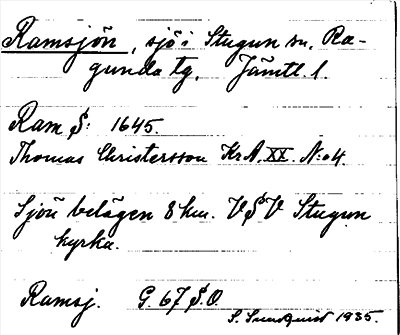 Ramsjön, sjö i Stugun sn. Ra-
gunda tg. Jämtl. l.
Ram S: 1645.
Thomas Christersson KrA. XX. N:o 4.
Sjön belägen 8 km. VSV Stugun
kyrka.
Ramsj. G. 67 S.O.
S. Sundquist 1935.